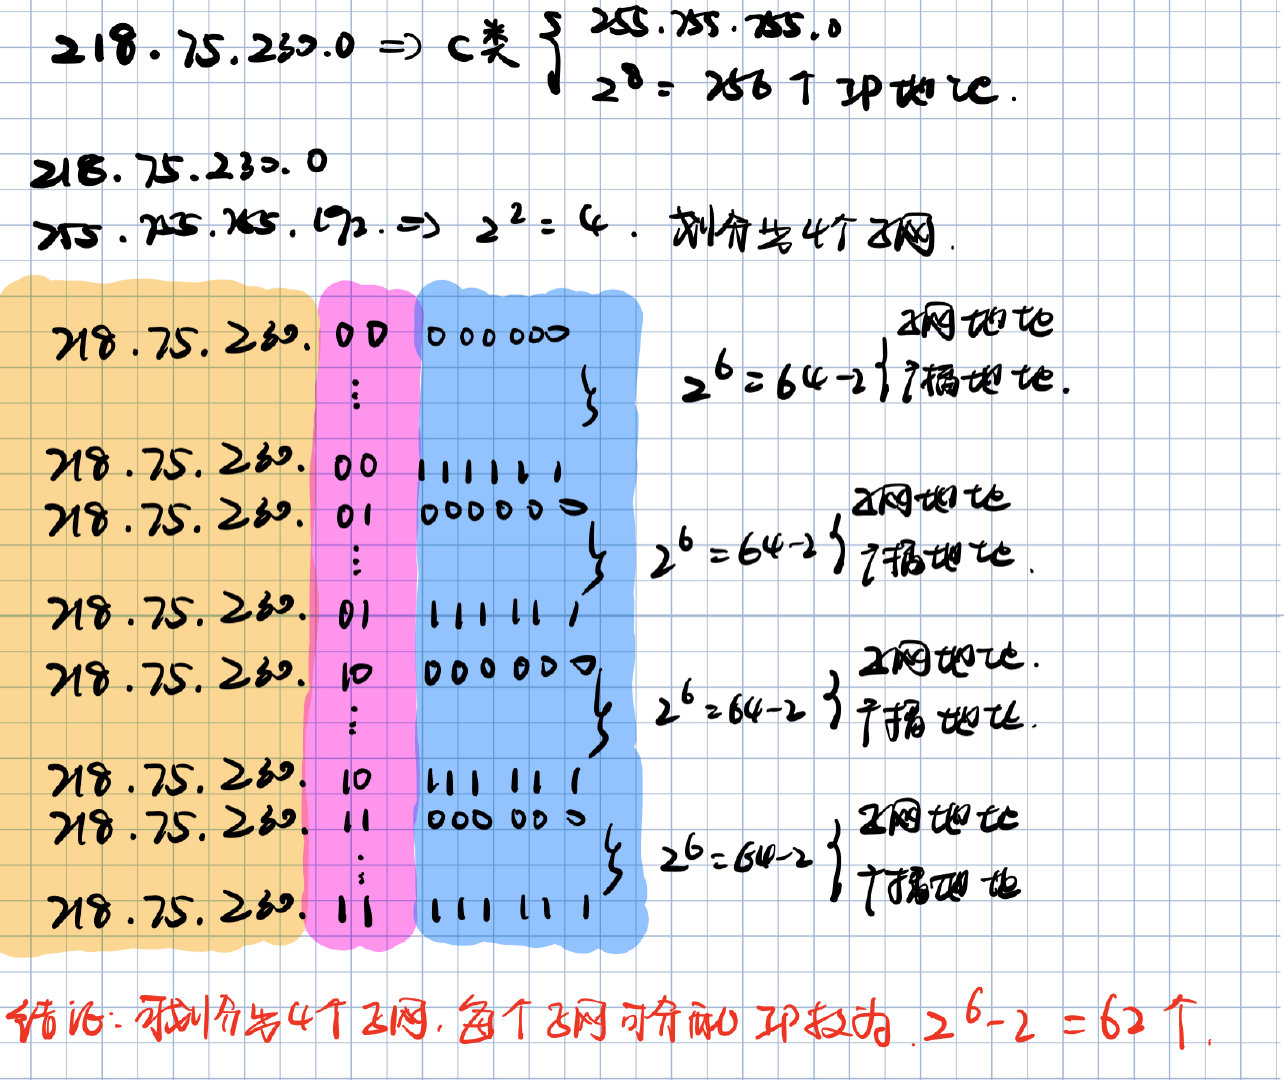 218.75.230.0 => C类 { 255.255.255.0
2⁸ = 256个IP地址.
218.75.230.0
255.255.255.192. => 2² = 4. 划分出4个子网.
218.75.230. 00 000000
⋮ } 2⁶ = 64-2 { 子网地址
广播地址.
218.75.230. 00 111111
218.75.230. 01 000000
⋮ } 2⁶ = 64-2 { 子网地址
广播地址.
218.75.230. 01 111111
218.75.230. 10 000000
⋮ } 2⁶ = 64-2 { 子网地址.
广播地址.
218.75.230. 10 111111
218.75.230. 11 000000
⋮ } 2⁶ = 64-2 { 子网地址
广播地址
218.75.230. 11 111111
结论: 可划分出4个子网, 每个子网可分配IP数为 2⁶-2 = 62个.